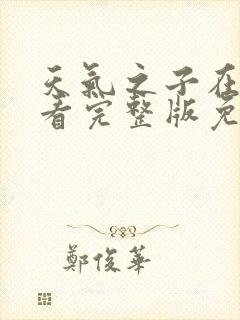 天氣之子在
看完整版免
鄭俊華